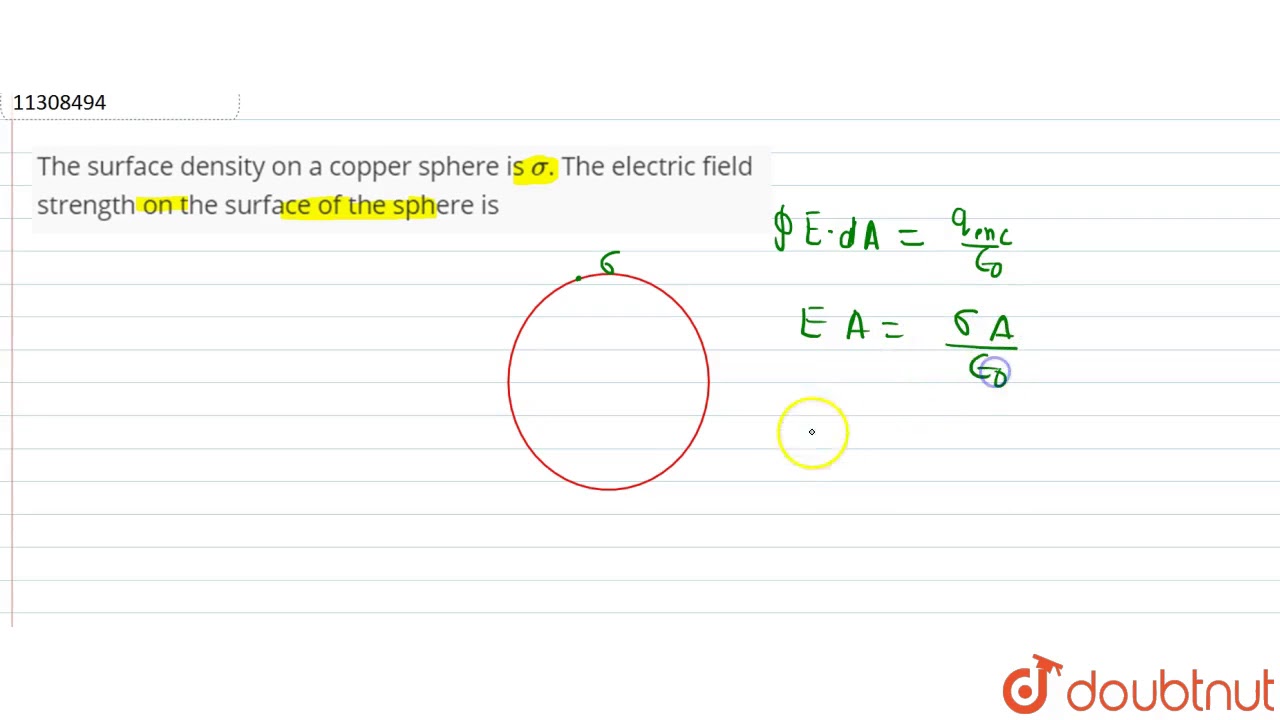 11308494
The surface density on a copper sphere is σ. The electric field
strength on the surface of the sphere is
∮ E·dA = qenc/ϵ0
σ
E A = σ A/ϵ0
doubtnut